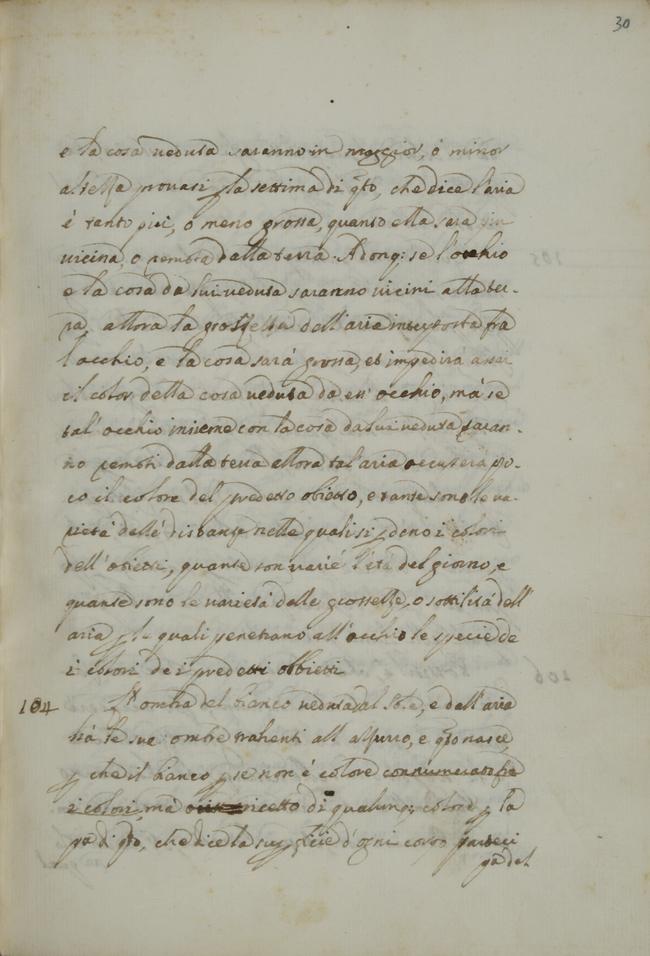 30
e la cosa veduta saranno in maggior, ò minor
altezza provasi p la settima di qto, che dice l'aria
è tanto piú, o meno grossa, quanto ella sará piu
vicina, o remota dalla terra. Adonq: se l'occhio
e la cosa da lui veduta saranno vicini alla ter-
ra, allora la grossezza dell'aria interposta fra
l'occhio, e la cosa sará grossa, et impedirá assai
il color della cosa veduta da ess' occhio, má se
tal' occhio insieme con la cosa da lui veduta saran-
no remoti dalla terra allora tal'aria occuperá po-
co il colore del predetto obietto, e tante sono le va-
rietá delle distanze nelle quali si pdeno i colori
dell'obietti, quante son varié l'etá del giorno, e
quante sono le varietá delle grossezze, o sottilitá dell'
aria p le quali penetrano all'occhio le specie de
i colori de i predetti obbietti
104 L'ombra del bianco veduta dal Sole, e dall'aria
há le sue ombre trahenti all'alzurro, e qto nasce,
p che il bianco p se non é colore connumerato fra
i colori, má ricetto di qualunq; colore p la
pa di qto, che dice la supficie d'ogni corpo parteci
pa del